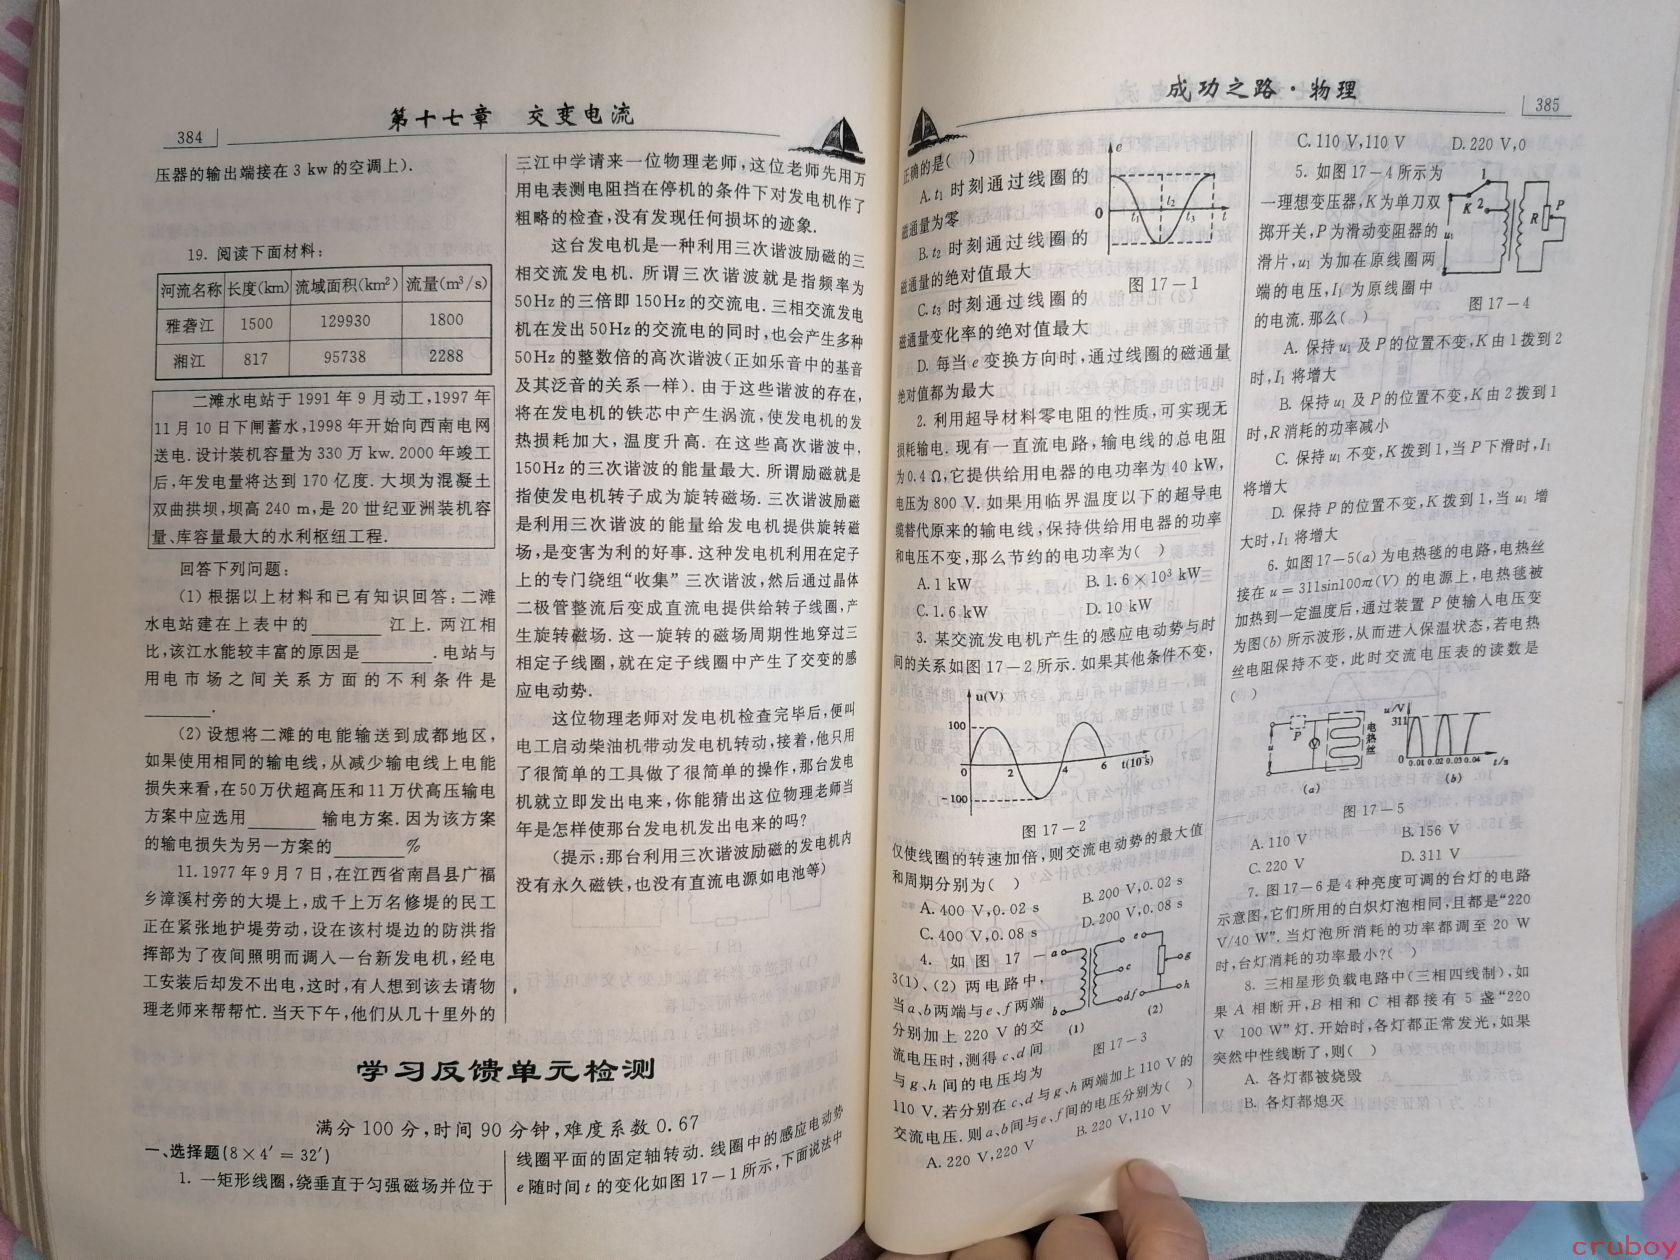 384
第十七章 交变电流
压器的输出端接在3 kw的空调上).
19. 阅读下面材料:
河流名称 长度(km) 流域面积(km²) 流量(m³/s)
雅砻江 1500 129930 1800
湘江 817 95738 2288
二滩水电站于1991年9月动工,1997年
11月10日下闸蓄水,1998年开始向西南电网
送电.设计装机容量为330万kw.2000年竣工
后,年发电量将达到170亿度.大坝为混凝土
双曲拱坝,坝高240 m,是20世纪亚洲装机容
量、库容量最大的水利枢纽工程.
回答下列问题:
(1)根据以上材料和已有知识回答:二滩
水电站建在上表中的______江上.两江相
比,该江水能较丰富的原因是______.电站与
用电市场之间关系方面的不利条件是
______.
(2)设想将二滩的电能输送到成都地区,
如果使用相同的输电线,从减少输电线上电能
损失来看,在50万伏超高压和11万伏高压输电
方案中应选用______输电方案.因为该方案
的输电损失为另一方案的______%
11.1977年9月7日,在江西省南昌县广福
乡漳溪村旁的大堤上,成千上万名修堤的民工
正在紧张地护堤劳动,设在该村堤边的防洪指
挥部为了夜间照明而调入一台新发电机,经电
工安装后却发不出电,这时,有人想到该去请物
理老师来帮帮忙.当天下午,他们从几十里外的
三江中学请来一位物理老师,这位老师先用万
用电表测电阻挡在停机的条件下对发电机作了
粗略的检查,没有发现任何损坏的迹象.
这台发电机是一种利用三次谐波励磁的三
相交流发电机.所谓三次谐波就是指频率为
50Hz的三倍即150Hz的交流电.三相交流发电
机在发出50Hz的交流电的同时,也会产生多种
50Hz的整数倍的高次谐波(正如乐音中的基音
及其泛音的关系一样).由于这些谐波的存在,
将在发电机的铁芯中产生涡流,使发电机的发
热损耗加大,温度升高.在这些高次谐波中,
150Hz的三次谐波的能量最大.所谓励磁就是
指使发电机转子成为旋转磁场.三次谐波励磁
是利用三次谐波的能量给发电机提供旋转磁
场,是变害为利的好事.这种发电机利用在定子
上的专门绕组“收集”三次谐波,然后通过晶体
二极管整流后变成直流电提供给转子线圈,产
生旋转磁场.这一旋转的磁场周期性地穿过三
相定子线圈,就在定子线圈中产生了交变的感
应电动势.
这位物理老师对发电机检查完毕后,便叫
电工启动柴油机带动发电机转动,接着,他只用
了很简单的工具做了很简单的操作,那台发电
机就立即发出电来,你能猜出这位物理老师当
年是怎样使那台发电机发出电来的吗?
(提示:那台利用三次谐波励磁的发电机内
没有永久磁铁,也没有直流电源如电池等)
学习反馈单元检测
满分100分,时间90分钟,难度系数0.67
一、选择题(8×4′=32′)
1. 一矩形线圈,绕垂直于匀强磁场并位于
线圈平面的固定轴转动.线圈中的感应电动势
e随时间t的变化如图17-1所示,下面说法中
成功之路·物理
385
正确的是( )
A.t₁时刻通过线圈的
磁通量为零
B.t₂时刻通过线圈的
磁通量的绝对值最大
C.t₃时刻通过线圈的
磁通量变化率的绝对值最大
e
0 t₁ t₂ t₃ t
图17-1
D.每当e变换方向时,通过线圈的磁通量
绝对值都为最大
2. 利用超导材料零电阻的性质,可实现无
损耗输电.现有一直流电路,输电线的总电阻
为0.4 Ω,它提供给用电器的电功率为40 kW,
电压为800 V.如果用临界温度以下的超导电
缆替代原来的输电线,保持供给用电器的功率
和电压不变,那么节约的电功率为( )
A.1 kW B.1.6×10³ kW
C.1.6 kW D.10 kW
3. 某交流发电机产生的感应电动势与时
间的关系如图17-2所示.如果其他条件不变,
u(V)
100
0 2 4 6 t(10⁻²s)
-100
图17-2
仅使线圈的转速加倍,则交流电动势的最大值
和周期分别为( )
A.400 V,0.02 s B.200 V,0.02 s
C.400 V,0.08 s D.200 V,0.08 s
4. 如图17-
3(1)、(2)两电路中,
当a、b两端与e、f两端
分别加上220 V的交
流电压时,测得c、d间
与g、h间的电压均为
a b c d (1)
e f g h (2)
图17-3
110 V.若分别在c、d与g、h两端加上110 V的
交流电压.则a、b间与e、f间的电压分别为( )
A.220 V,220 V B.220 V,110 V
C.110 V,110 V D.220 V,0
5. 如图17-4所示为
一理想变压器,K为单刀双
掷开关,P为滑动变阻器的
滑片,u₁为加在原线圈两
端的电压,I₁为原线圈中
的电流.那么( )
1 K 2 u₁ R P
图17-4
A. 保持u₁及P的位置不变,K由1拨到2
时,I₁将增大
B. 保持u₁及P的位置不变,K由2拨到1
时,R消耗的功率减小
C. 保持u₁不变,K拨到1,当P下滑时,I₁
将增大
D. 保持P的位置不变,K拨到1,当u₁增
大时,I₁将增大
6. 如图17-5(a)为电热毯的电路,电热丝
接在u=311sin100πt(V)的电源上,电热毯被
加热到一定温度后,通过装置P使输入电压变
为图(b)所示波形,从而进入保温状态,若电热
丝电阻保持不变,此时交流电压表的读数是
( )
u P V 电热丝
(a)
u/V
311
0 0.01 0.02 0.03 0.04 t/s
(b)
图17-5
A.110 V B.156 V
C.220 V D.311 V
7. 图17-6是4种亮度可调的台灯的电路
示意图,它们所用的白炽灯泡相同,且都是“220
V/40 W”.当灯泡所消耗的功率都调至20 W
时,台灯消耗的功率最小?( )
8. 三相星形负载电路中(三相四线制),如
果A相断开,B相和C相都接有5盏“220
V 100 W”灯.开始时,各灯都正常发光,如果
突然中性线断了,则( )
A. 各灯都被烧毁
B. 各灯都熄灭
cruboy